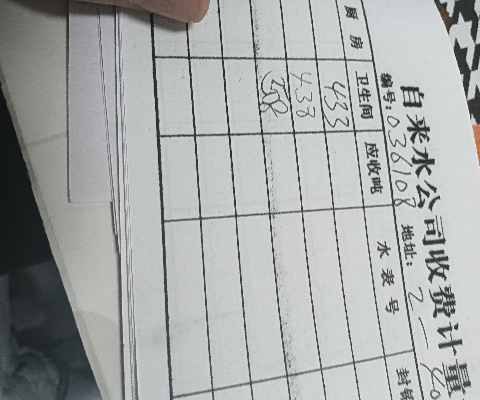 自来水公司收费计量
编号: 036108 地址: 2一
厨房 卫生间 应收吨 水表号 封
433
438